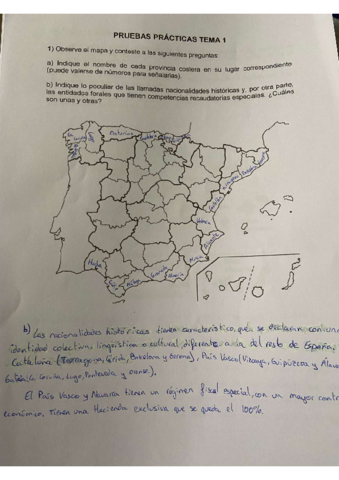 PRUEBAS PRÁCTICAS TEMA 1
1) Observe el mapa y conteste a las siguientes preguntas:
a) Indique el nombre de cada provincia costera en su lugar correspondiente
(puede valerse de números para señalarlas).
b) Indique lo peculiar de las llamadas nacionalidades históricas y, por otra parte,
las entidades forales que tienen competencias recaudatorias especiales. ¿Cuáles
son unas y otras?
Asturias
Huelva
Málaga
Granada
Almería
Murcia
Alicante
Valencia
b) Las nacionalidades históricas tienen característico, que se declaran con una
identidad colectiva, lingüística o cultural diferenciada del resto de España,
Cataluña (Tarragona, Lérida, Barcelona y Gerona), País Vasco (Vizcaya, Guipúzcoa y Álava
Galicia (La Coruña, Lugo, Pontevedra y Ourense).
El País Vasco y Navarra tienen un régimen fiscal especial, con un mayor contr
económico, tienen una Hacienda exclusiva que se queda el 100%.